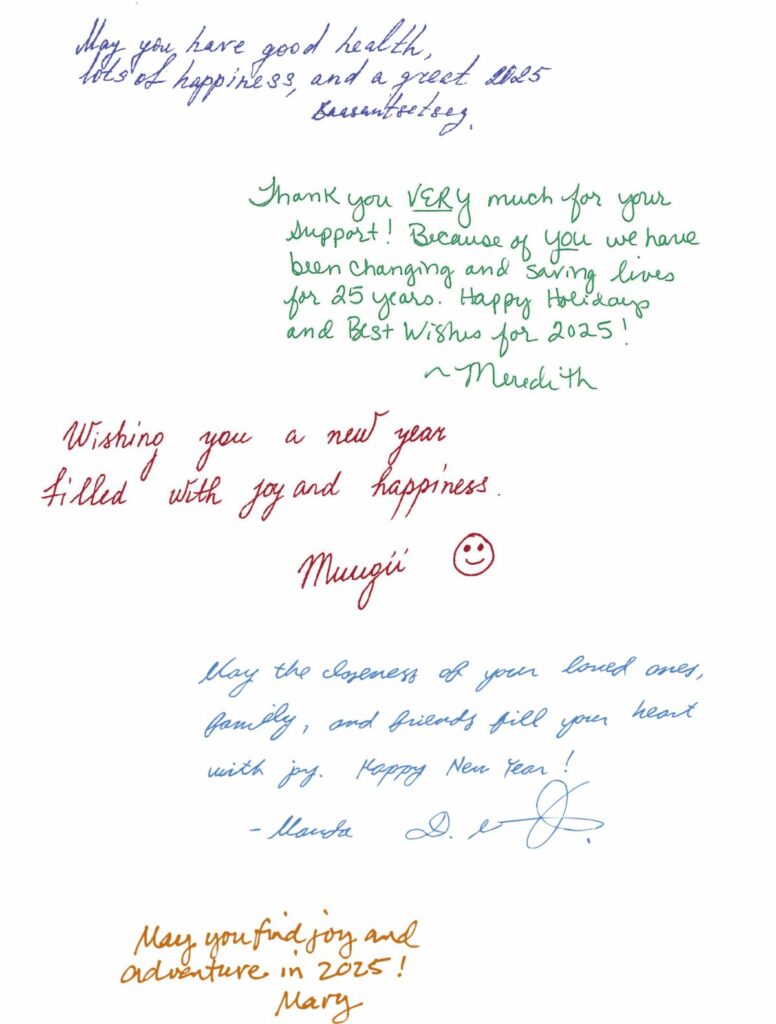 May you have good health,
lots of happiness, and a great 2025
Baasantsetseg.
Thank you VERY much for your
support! Because of you we have
been changing and saving lives
for 25 years. Happy Holidays
and Best Wishes for 2025!
~Meredith
Wishing you a new year
filled with joy and happiness.
Muugii
May the closeness of your loved ones,
family, and friends fill your heart
with joy. Happy New Year!
- Manda D.
May you find joy and
adventure in 2025!
Mary